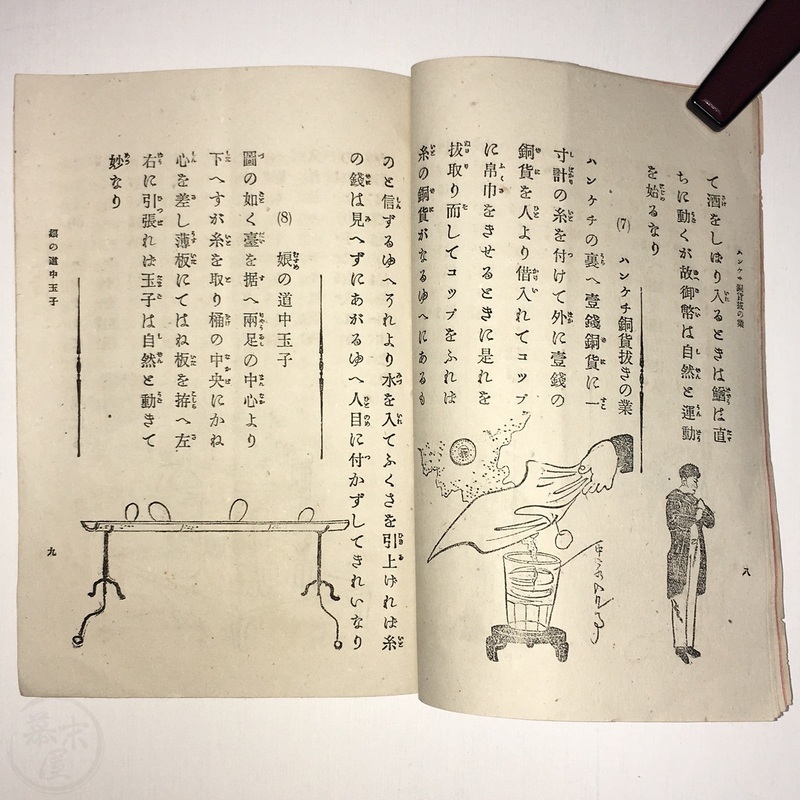 ハンケチ銅貨拔の業
て酒をしぼり入るときは鰌は直
ちに動くが故御幣は自然と運動
を始るなり
(7) ハンケチ銅貨拔きの業
ハンケチの裏へ壹錢銅貨に一
寸計の糸を付けて外に壹錢の
銅貨を人より借入れてコップ
に帛巾をきせるときに是れを
拔取り而してコップをふれは
糸の銅貨がなるゆへにあるも
八
のと信ずるゆへそれより水を入てふくさを引上ければ糸
の錢は見へずにあがるゆへ人目に付かずしてきれいなり
(8) 娘の道中玉子
圖の如く臺を据へ兩足の中心より
下へすが糸を取り桶の中央にかね
心を差し薄板にてはね板を拵へ左
右に引張れは玉子は自然と動きて
妙なり
娘の道中玉子
九
幕末屋